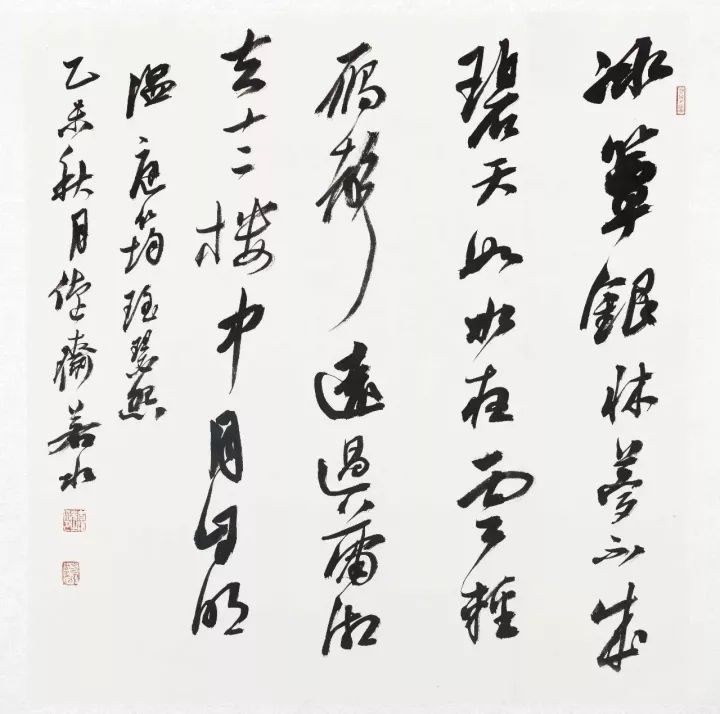 冰簟銀牀夢不成
碧天如水夜雲輕
鴈聲遠過瀟湘
去十二樓中月自明
温庭筠瑶瑟怨
乙未秋月齋若水